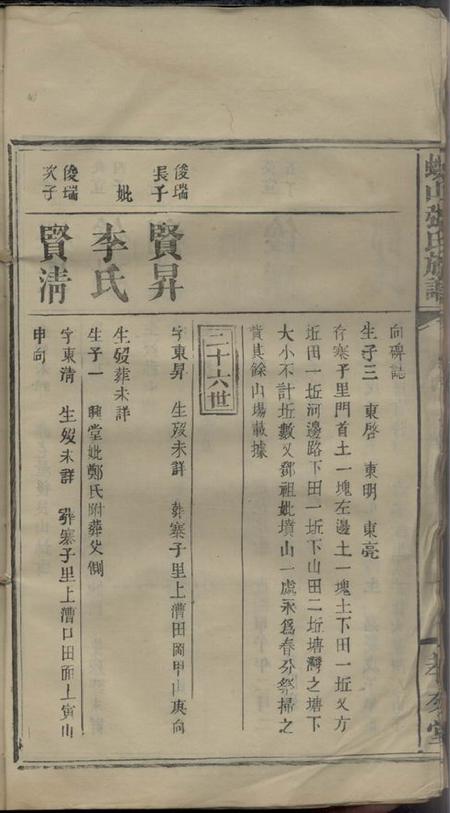 山張氏族譜
向碑誌
生子三　東啓　東明　東亮
存寨子里門首土一塊左邊土一塊土下田一坵又方
坵田一坵河邊路下田一坵下山田二坵塘灣之塘下
大小不計坵數又鄧祖妣墳山一處永爲春分祭掃之
貲其餘山場載據
二十六世
俊瑞長子
賢昇
字東昇　生歿未詳　葬寨子里上漕田岡甲山庚向
妣
李氏
生歿葬未詳
生子一　興堂妣鄭氏附葬父側
俊瑞次子
賢清
字東清　生歿未詳　葬寨子里上漕口田面上寅山
申向